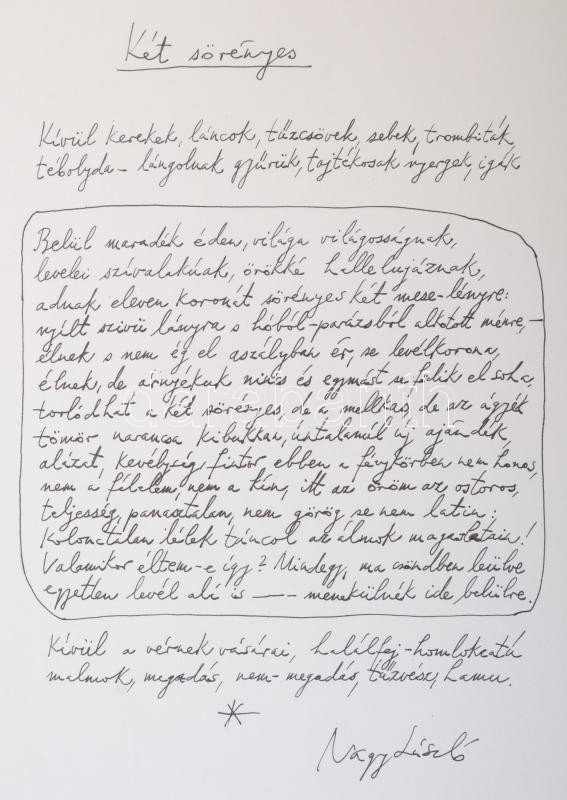 Két sörényes
Kívül kerekek, láncok, tűzcsövek, sebek, trombiták,
tébolyda – lángolnak gyűrűk, tajtékosak nyergek, igák
Belül maradék éden, világa világosságnak,
levelei szívalakúak, örökké hallelujáznak,
adnak eleven koronát sörényes két mese-lényre:
nyílt szivü lányra s hóból-parázsból alkotott ménre, –
élnek s nem ég el aszályban ér, se levélkorona,
élnek, de árnyékuk nincs és egymást se falik el soha,
torlódhat a két sörényes, de őt mellkas, de az ágyék
tömör narancsa kibukkan, úntalanúl új ajándék,
alázat, kevélység, fintor ebben a fénykörben nem honos,
nem a félelem, nem a kín, itt az öröm az ostoros,
teljesség, panasztalan, nem görög se nem latin:
Koloncátlan lélek táncol az álmok magaslatain!
Valamikor éltem-e így? Mindegy, ma csöndben leülve
egyetlen levél alá is —— menekülnék ide belülre.
Kívül a vérnek vásárai, halálfej-homlokzatú
malmok, megadás, nem-megadás, tűzvész, hamu.
Nagy László
darabanth